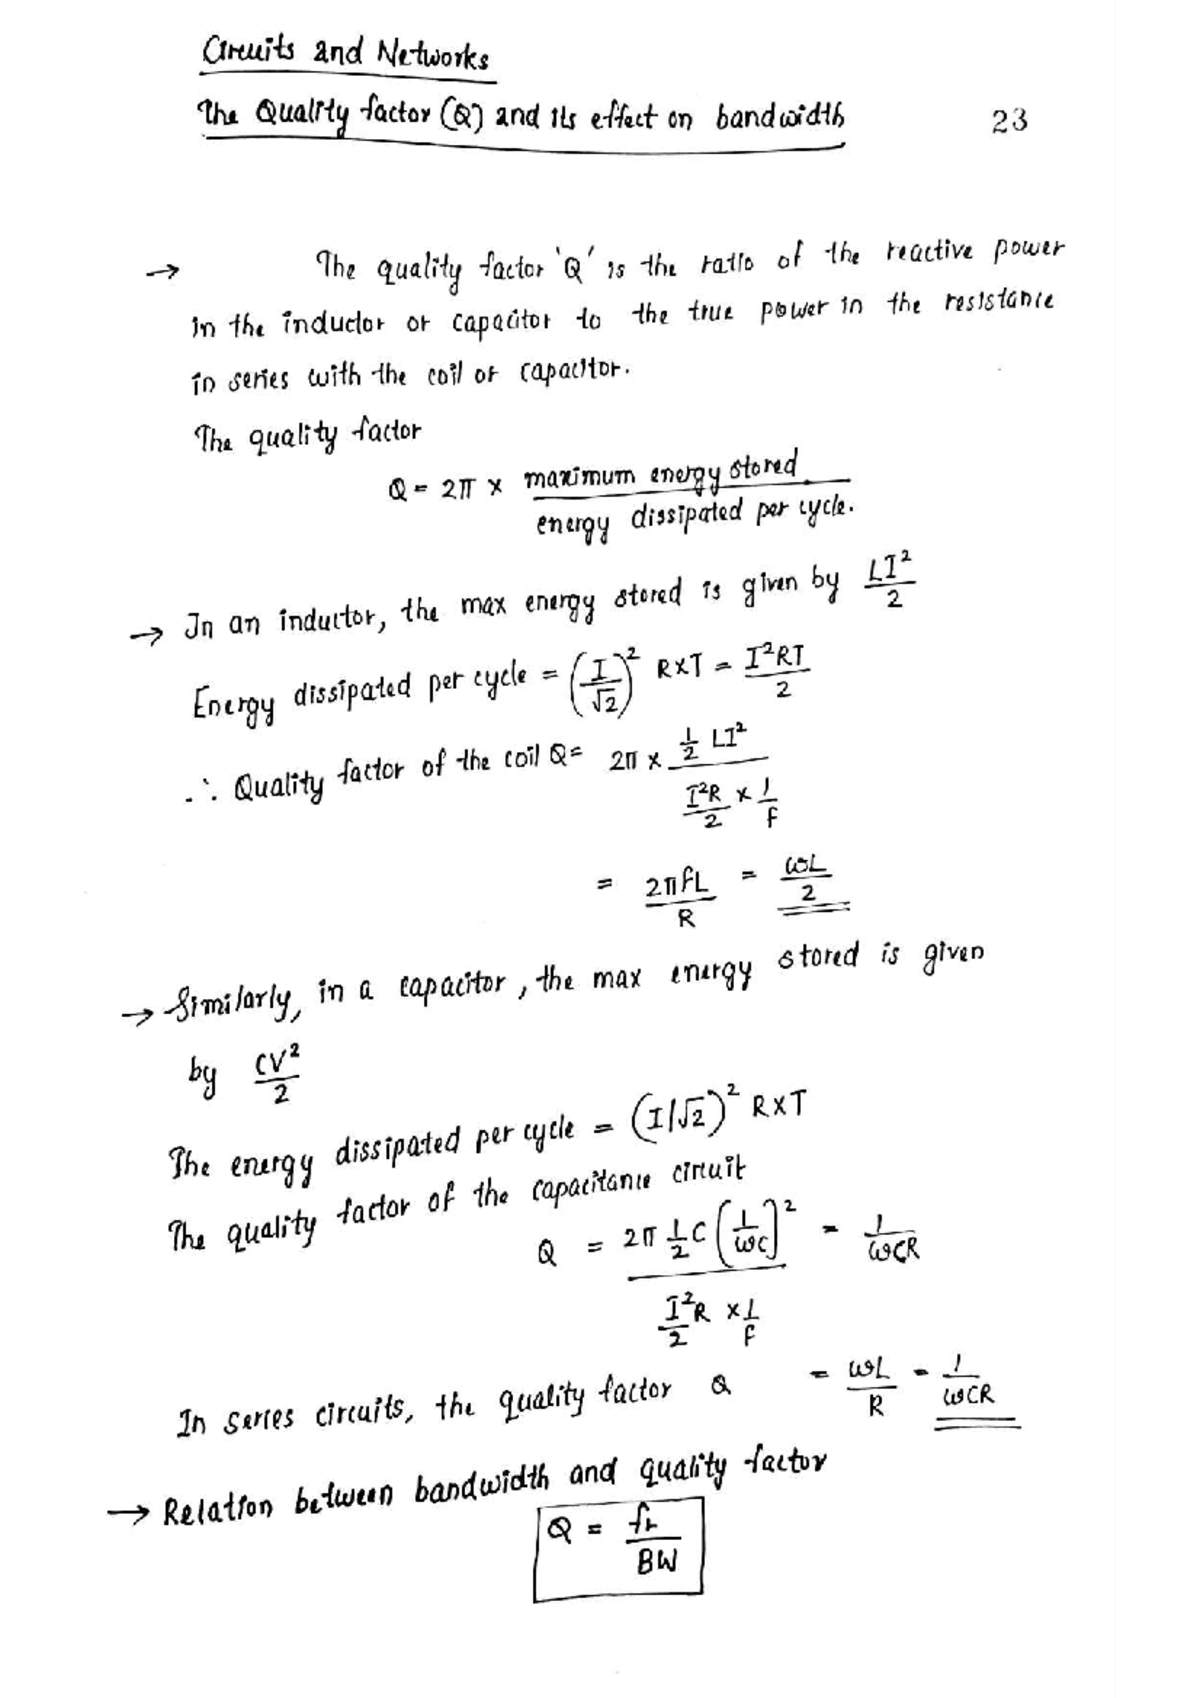 Circuits and Networks
The Quality factor (Q) and its effect on bandwidth 23
→ The quality factor 'Q' is the ratio of the reactive power
in the inductor or capacitor to the true power in the resistance
in series with the coil or capacitor.
The quality factor
Q = 2π × maximum energy stored
energy dissipated per cycle.
→ In an inductor, the max energy stored is given by LI²/2
Energy dissipated per cycle = (I/√2)² R×T = I²RT/2
∴ Quality factor of the coil Q = 2π × ½ LI²
I²R/2 × 1/f
= 2πfL/R = ωL/2
→ Similarly, in a capacitor, the max energy stored is given
by CV²/2
The energy dissipated per cycle = (I/√2)² R×T
The quality factor of the capacitance circuit
Q = 2π ½C (1/ωC)² = 1/ωCR
I²/2 R × 1/f
In series circuits, the quality factor Q = ωL/R = 1/ωCR
→ Relation between bandwidth and quality factor
Q = fr/BW